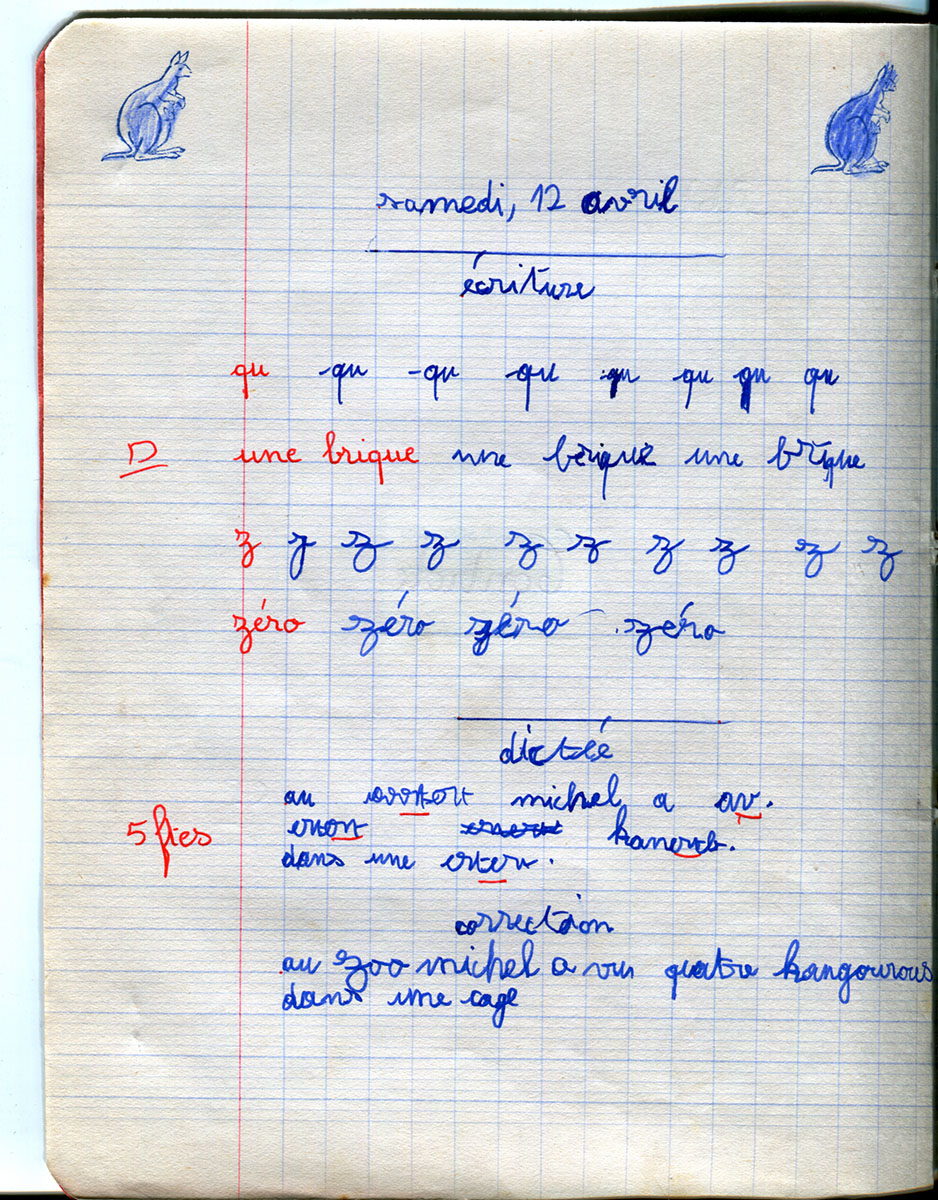 samedi, 12 avril
écriture
qu qu qu qu qu qu qu qu
D une brique une brique une brique
z z z z z z z z z z
zéro zéro zéro zéro
dictée
au michel a av.
5 ftes
dans une
correction
au zoo michel a vu quatre kangourous
dans une cage